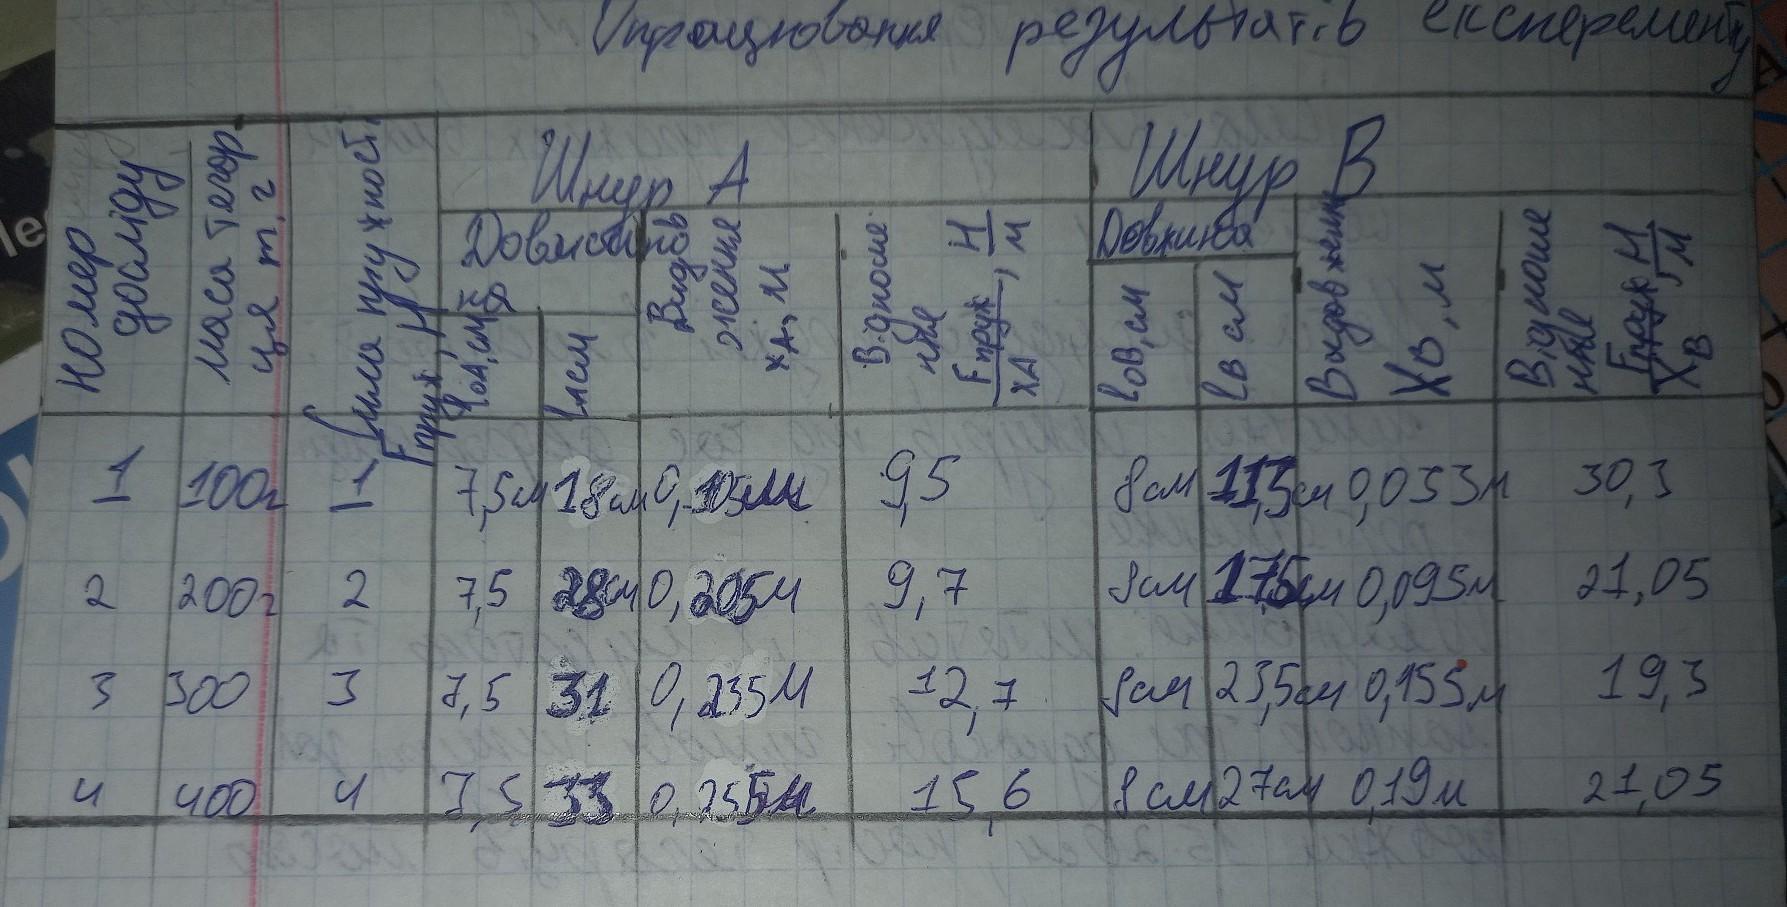 Опрацювання результатів експеременту
Номер досліду
маса тягарця m, г
Сила пружності Fпруж, Н
Шнур А
Довжина
l₀А, см
lА см
Видовження xА, м
Відношення Fпруж/xА, Н/м
Шнур В
Довжина
l₀В, см
lВ см
Видовження XВ, м
Відношення Fпруж/XВ Н/м
1 100г 1 7,5см 18см 0,105м 9,5 8см 11,3см 0,033м 30,3
2 200г 2 7,5 28см 0,205м 9,7 8см 17,5см 0,095м 21,05
3 300 3 7,5 31 0,235м 12,7 8см 23,5см 0,155м 19,3
4 400 4 7,5 33 0,255м 15,6 8см 27см 0,19м 21,05